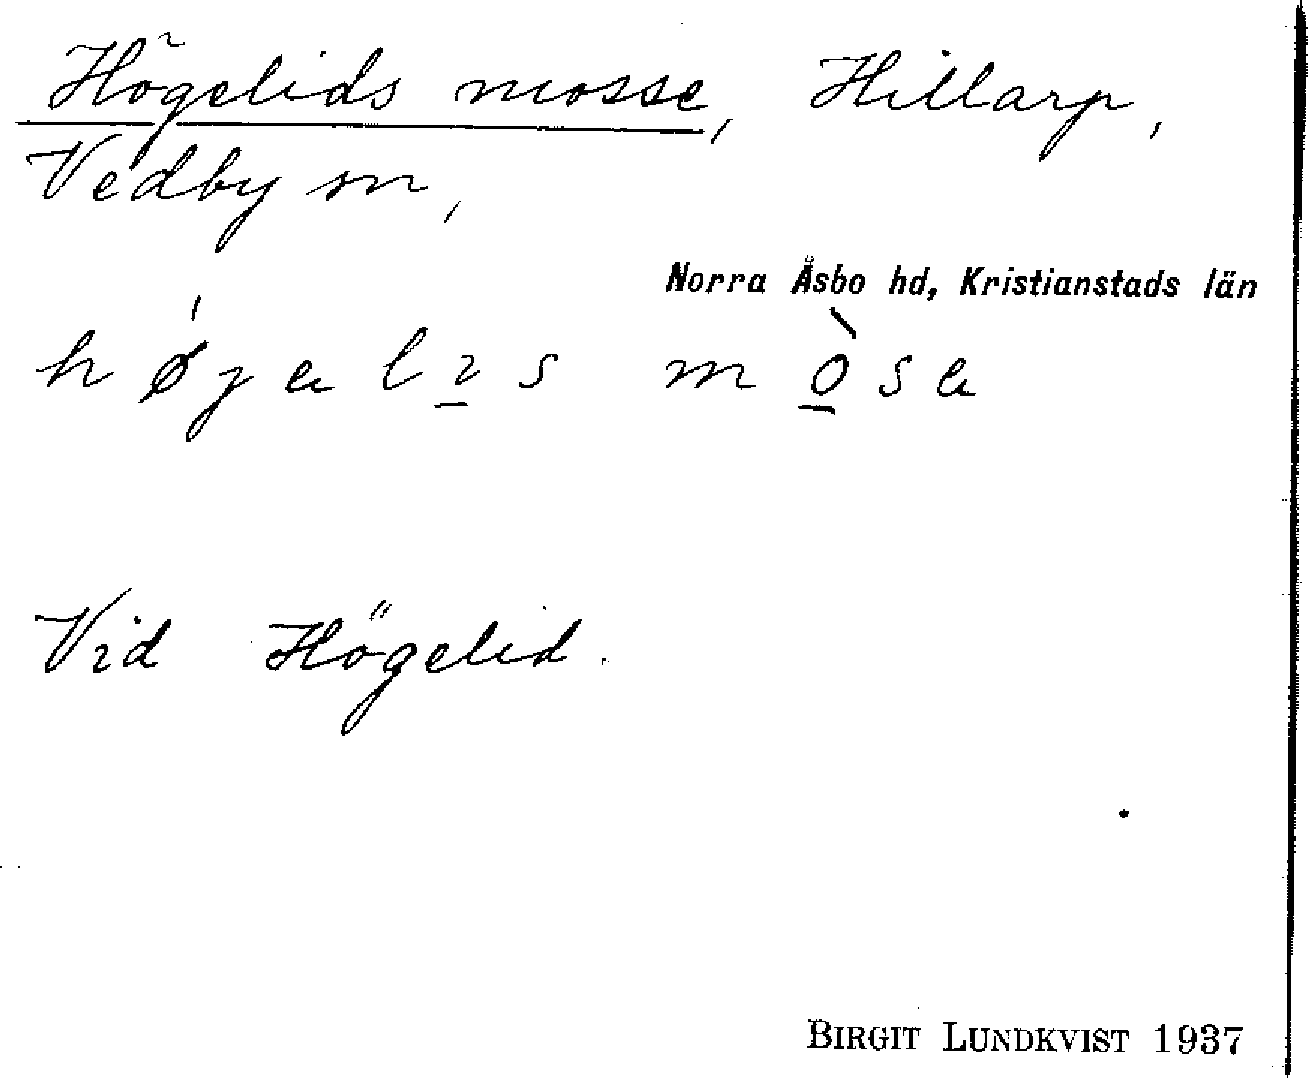 Högelids mosse, Hillarp,
Vedby sn,
Norra Åsbo hd, Kristianstads län
Vid Högelid.
BIRGIT LUNDKVIST 1937